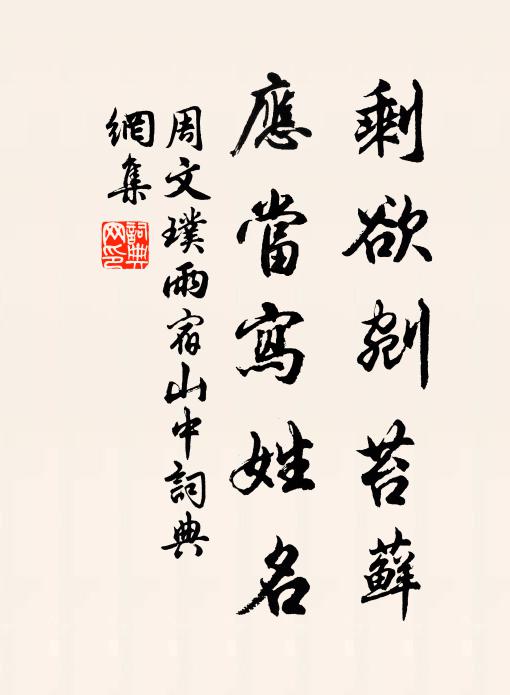 剩欲剜苔蘚
應當寫姓名
周文璞雨宿山中詞典
網集
詞典
网印